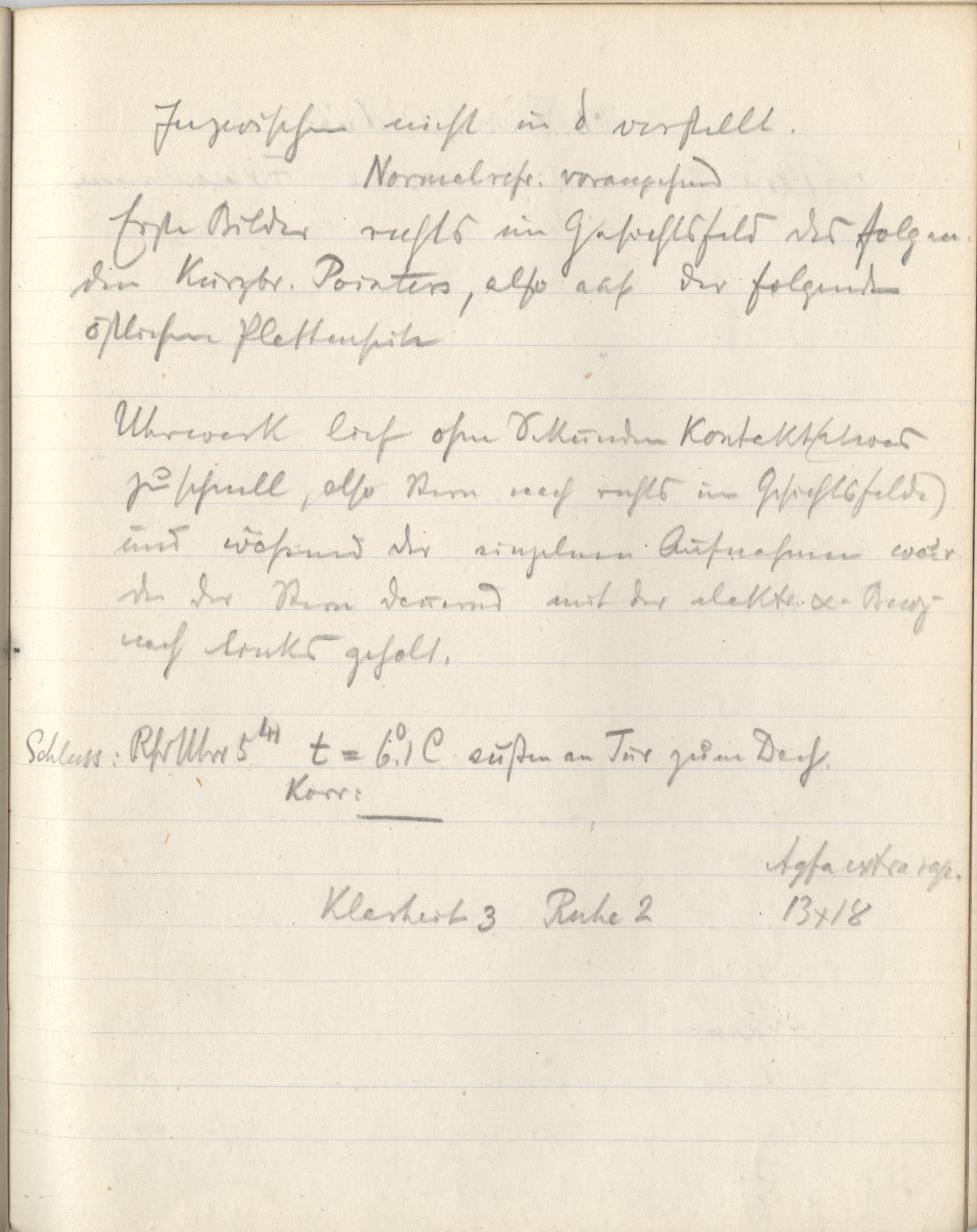 Inzwischen nicht in δ verstellt.
Normalrefr. vorangehend
Erste Bilder rechts im Gesichtsfeld des folgen-
den Kurzbr. Pointers, also auf der folgenden
östlichen Plattenseite
Uhrwerk lief ohne Sekunden Kontakt (etwas
zu schnell, also Stern nach rechts im Gesichtsfelde)
und während der einzelnen Aufnahmen wur
de der Stern dauernd mit der elektr. α-Beweg-
nach links geholt.
Schluss: RflrUhr 5 t = 6.°1 C außen an Tür zum Dach.
Korr:
Agfa extra rap.
Klarheit 3 Ruhe 2 13x18